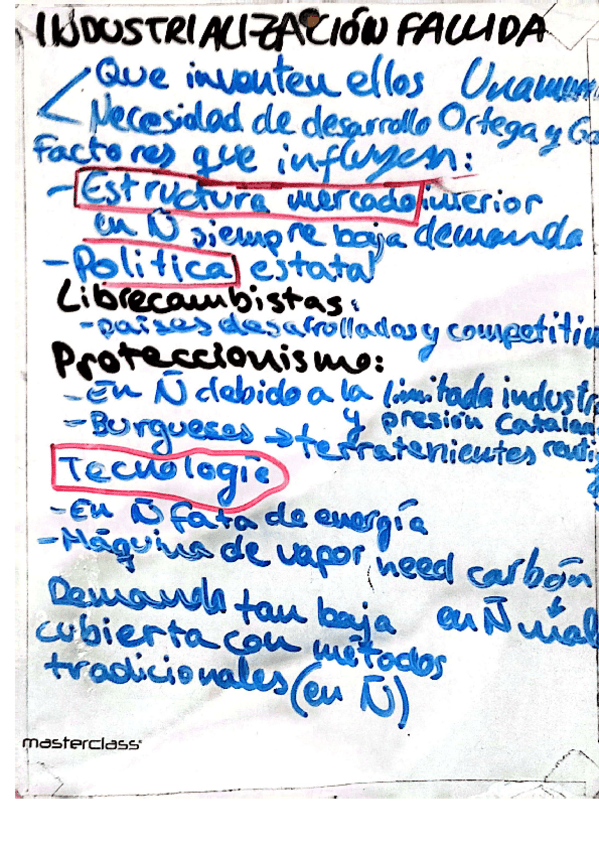 INDUSTRIALIZACIÓN FALLIDA
Que inventen ellos Unamun
Necesidad de desarrollo Ortega y Ga
Factores que influyen:
- Estructura mercado interior
en Ñ siempre baja demanda
- Politica estatal
Librecambistas:
- países desarrollados y competitiv
Proteccionismo:
- En Ñ debido a la limitada industr
y presión Catalan
- Burgueses → terratenientes
Tecnologia
- En Ñ fata de energía
- Máquina de vapor need carbón
Demanda tan baja en Ñ mal
cubierta con métodos
tradicionales (en Ñ)
masterclass